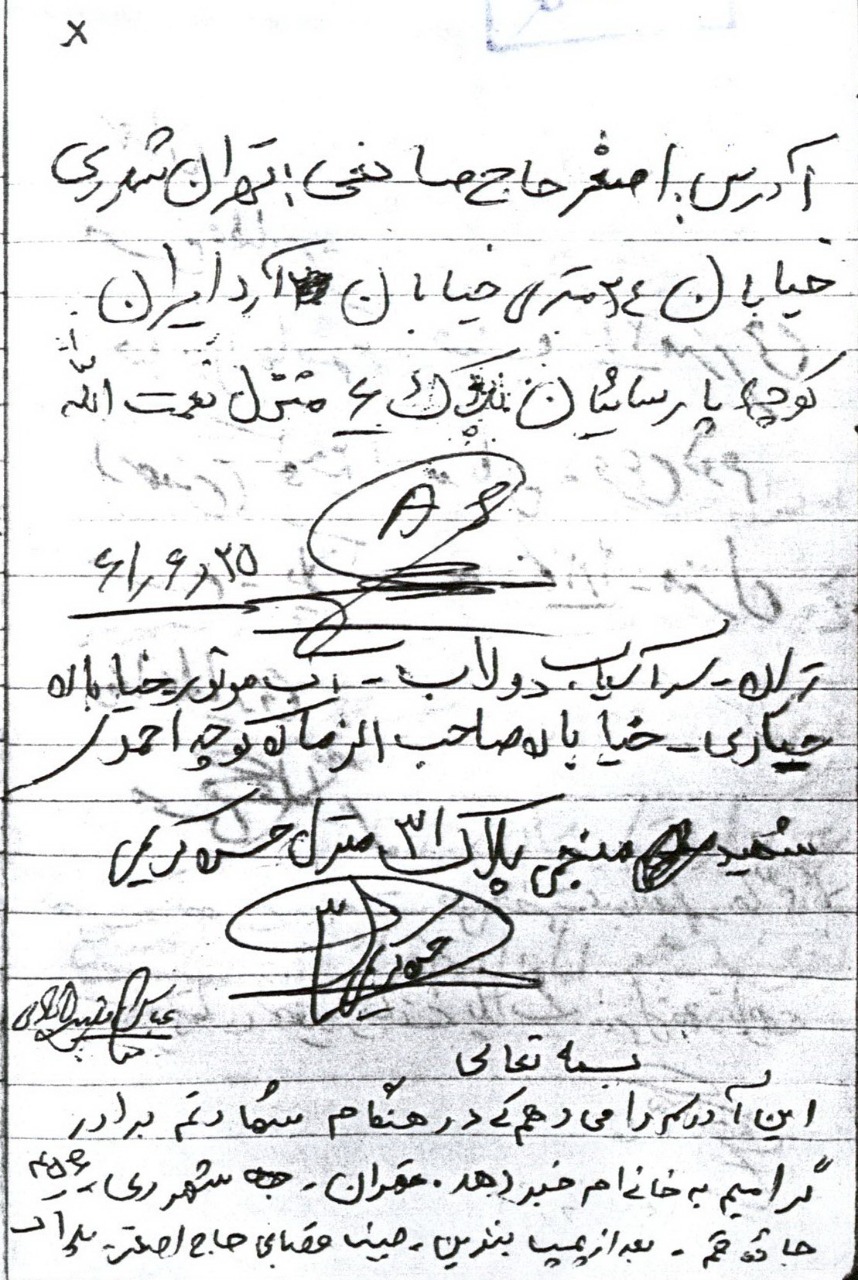 x
آدرس: اصغر حاج صا دقی: تهران شهرری
خیابان ۲۴ متری خیابان آرد ایران
کوچه پارسائیان پلاک ۶ منزل نعمت الله
A
۶۱٫۶٫۲۵
تهران - سرآسیاب دولاب - آب موتور خیابان
خیابان صاحب الزمان کوچه احمد
شهید منجی پلاک ۳۱ منزل حسن کریمی
حسن کریمی
عباس
بسمه تعالی
این آدرس را می دهم که در هنگام شهادتم برادر
گرامیم به خانه ام خبر دهد. تهران - شهرری -
جاده قم - بعد از پمپ بنزین - جنب قصابی حاج اصغر - پلاک